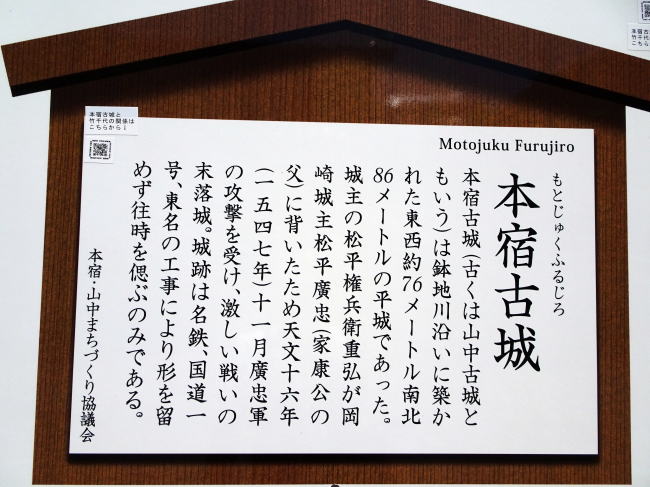 Motojuku Furujiro
もとじゅくふるじろ
本宿古城
本宿古城(古くは山中古城と
もいう)は鉢地川沿いに築か
れた東西約76メートル南北
86メートルの平城であった。
城主の松平権兵衛重弘が岡
崎城主松平廣忠(家康公の
父)に背いたため天文十六年
(一五四七年)十一月廣忠軍
の攻撃を受け、激しい戦いの
末落城。城跡は名鉄、国道一
号、東名の工事により形を留
めず往時を偲ぶのみである。
本宿・山中まちづくり協議会
本宿古城と
竹千代の関係は
こちらから!